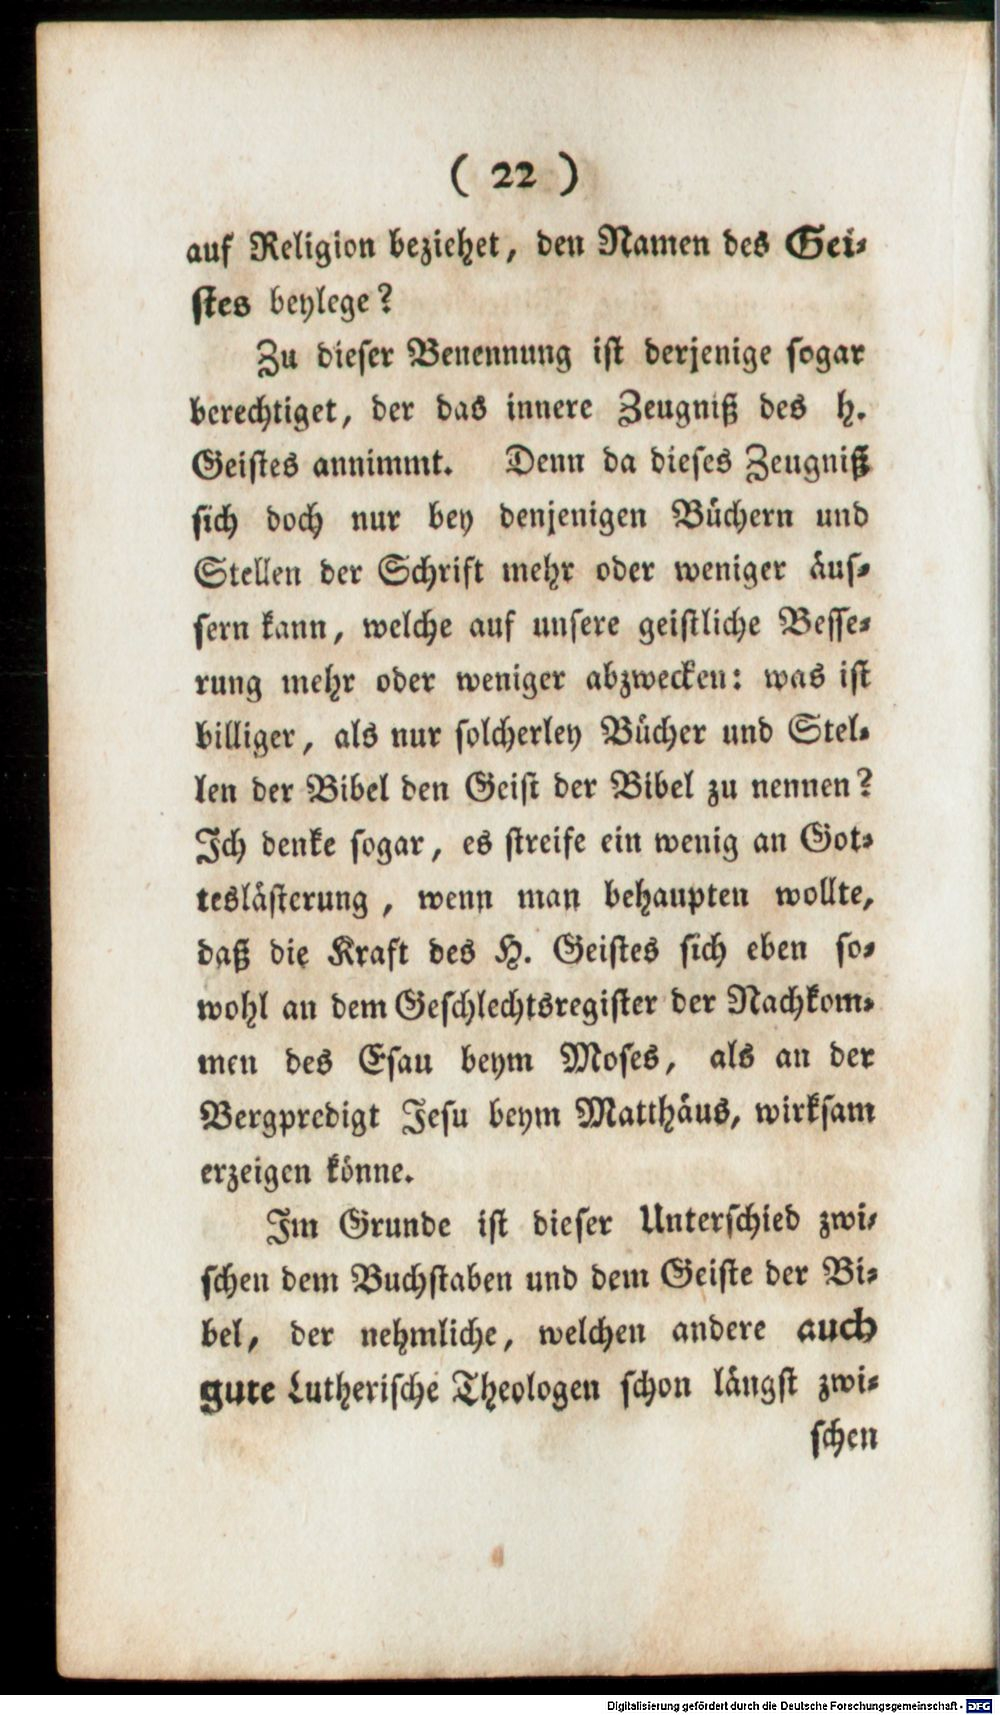 ( 22 )
auf Religion beziehet, den Namen des Gei-
stes beylege?
Zu dieser Benennung ist derjenige sogar
berechtiget, der das innere Zeugniß des h.
Geistes annimmt. Denn da dieses Zeugniß
sich doch nur bey denjenigen Büchern und
Stellen der Schrift mehr oder weniger äus-
sern kann, welche auf unsere geistliche Besse-
rung mehr oder weniger abzwecken: was ist
billiger, als nur solcherley Bücher und Stel-
len der Bibel den Geist der Bibel zu nennen?
Ich denke sogar, es streife ein wenig an Got-
teslästerung, wenn man behaupten wollte,
daß die Kraft des H. Geistes sich eben so-
wohl an dem Geschlechtsregister der Nachkom-
men des Esau beym Moses, als an der
Bergpredigt Jesu beym Matthäus, wirksam
erzeigen könne.
Im Grunde ist dieser Unterschied zwi-
schen dem Buchstaben und dem Geiste der Bi-
bel, der nehmliche, welchen andere auch
gute Lutherische Theologen schon längst zwi-
schen
Digitalisierung gefördert durch die Deutsche Forschungsgemeinschaft - DFG